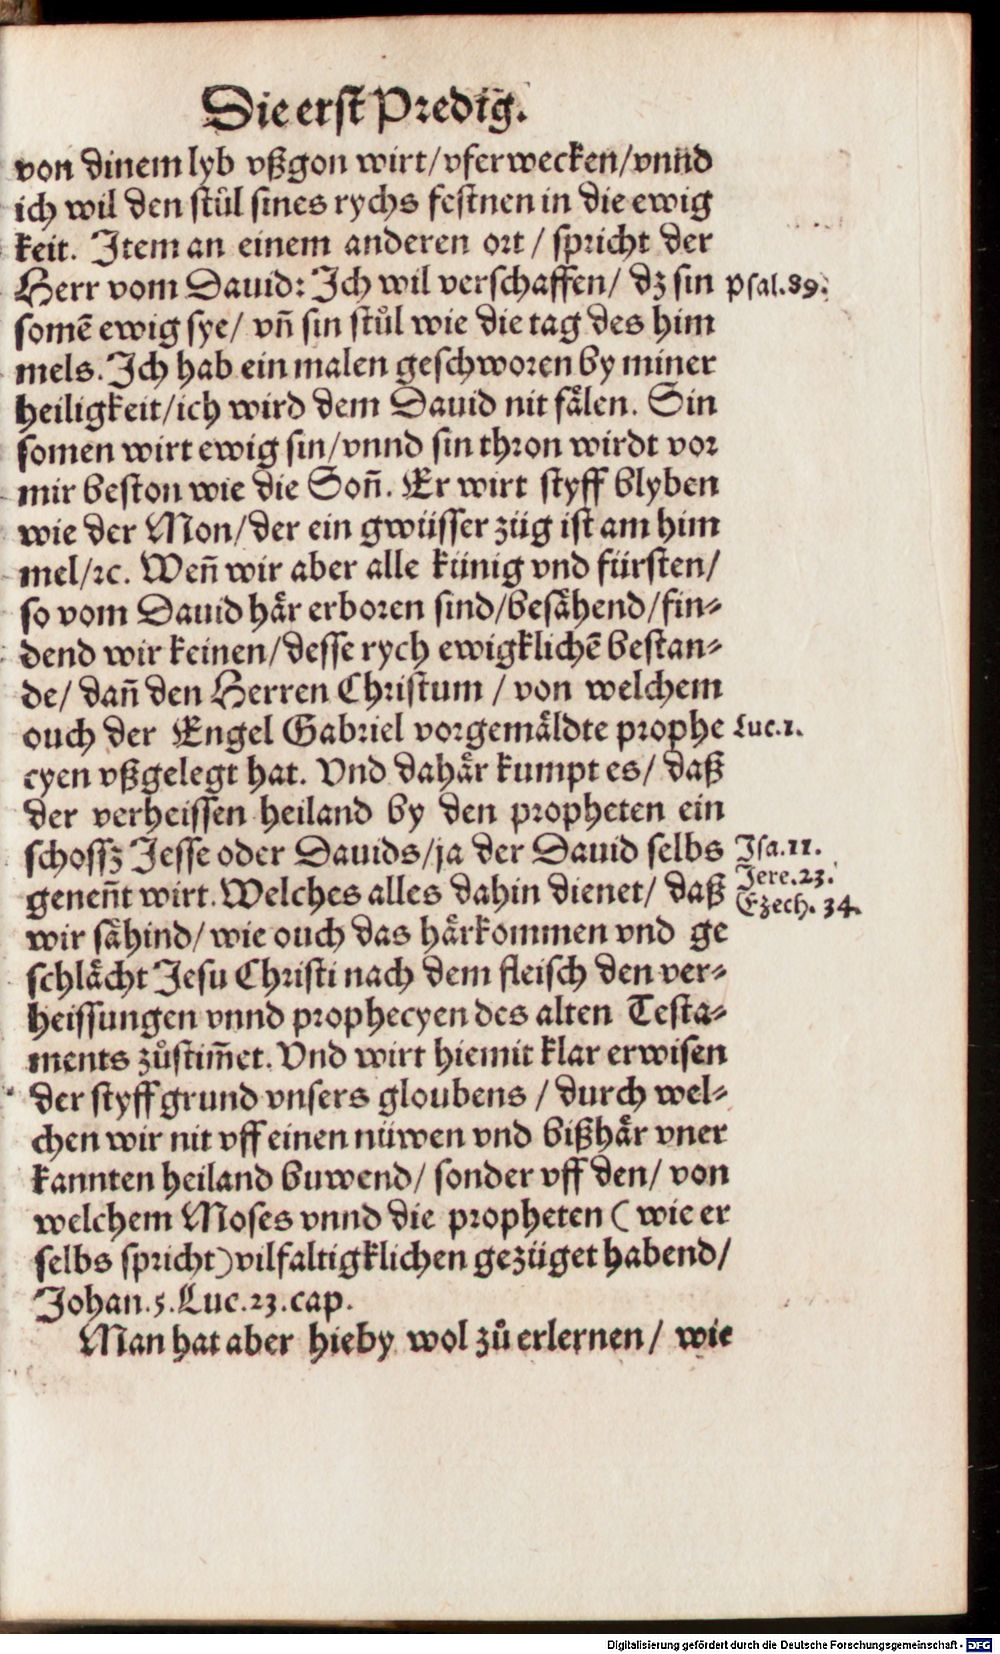 Die erst Predig.
von dinem lyb vßgon wirt/vferwecken/vnnd
ich wil den stůl sines rychs festnen in die ewig
keit. Item an einem anderen ort / spricht der
Herr vom Dauid: Ich wil verschaffen/ dz sin
Psal.89.
somē ewig sye/ vñ sin stůl wie die tag des him
mels. Ich hab ein malen geschworen by miner
heiligkeit/ich wird dem Dauid nit fålen. Sin
somen wirt ewig sin/vnnd sin thron wirdt vor
mir beston wie die Soñ. Er wirt styff blyben
wie der Mon/der ein gwüsser züg ist am him
mel/ꝛc. Weñ wir aber alle künig vnd fürsten/
so vom Dauid hår erboren sind/besåhend/fin⸗
dend wir keinen/desse rych ewigklichē bestan⸗
de/ dañ den Herren Christum / von welchem
ouch der Engel Gabriel vorgemåldte prophe
Luc.1.
cyen vßgelegt hat. Vnd dahår kumpt es/ daß
der verheissen heiland by den propheten ein
schossz Jesse oder Dauids/ja der Dauid selbs
Isa.11.
Jere.23.
geneñt wirt. Welches alles dahin dienet/ daß
Ezech. 34.
wir såhind/ wie ouch das hårkommen vnd ge
schlåcht Jesu Christi nach dem fleisch den ver⸗
heissungen vnnd prophecyen des alten Testa⸗
ments zůstim̃et. Vnd wirt hiemit klar erwisen
der styff grund vnsers gloubens / durch wel⸗
chen wir nit vff einen nüwen vnd bißhår vner
kannten heiland buwend/ sonder vff den/ von
welchem Moses vnnd die propheten ( wie er
selbs spricht) vilfaltigklichen gezüget habend/
Johan.5. Luc.23.cap.
Man hat aber hieby wol zů erlernen/ wie
Digitalisierung gefördert durch die Deutsche Forschungsgemeinschaft - DFG